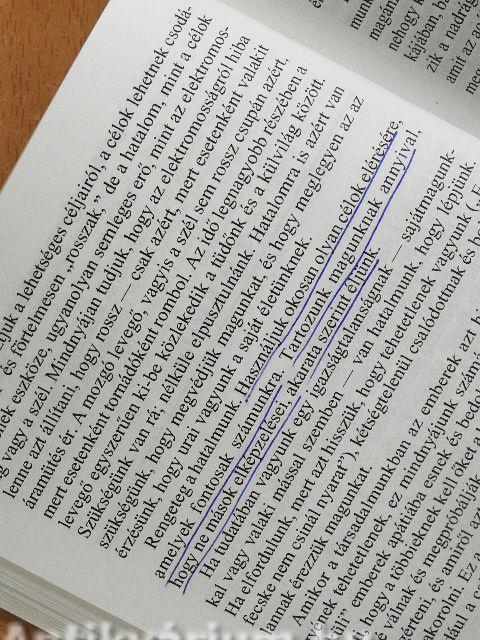 ejük a lehetséges céljairól, a célok lehetnek csodá-
és förtelmesen „rosszak", de a hatalom, mint a célok
nek eszköze, ugyanolyan semleges erő, mint az elektromos-
g vagy a szél. Mindnyájan tudjuk, hogy az elektromosságról hiba
lenne azt állítani, hogy rossz — csak azért, mert esetenként valakit
áramütés ér. A mozgó levegő, vagyis a szél sem rossz csupán azért,
mert esetenként tornádóként rombol. Az idő legnagyobb részében a
levegő egyszerűen ki-be közlekedik a tüdőnk és a külvilág között.
Szükségünk van rá, nélküle elpusztulnánk. Hatalomra is azért van
szükségünk, hogy megvédjük magunkat, és hogy meglegyen az az
érzésünk, hogy urai vagyunk a saját életünknek.
Rengeteg a hatalmunk. Használjuk okosan olyan célok elérésére,
amelyek fontosak számunkra. Tartozunk magunknak annyival,
hogy ne mások elképzelései, akarata szerint éljünk.
Ha tudatában vagyunk egy igazságtalanságnak — sajátmagunk-
kal vagy valaki mással szemben — van hatalmunk, hogy lépjünk.
Ha elfordulunk, mert azt hisszük, hogy tehetetlenek vagyunk („E
fecske nem csinál nyarat"), kétségtelenül csalódottnak és
annak érezzük magunkat.
Amikor a társadalmunkban az emberek azt
ek tehetetlenek, ez mindnyájunk számá
emberek apátiába esnek és
hogy a többieknek kell őket a
válnak és megpróbálják
érteni, és amiről az
orolni. Ez a
Antikvárium.hu